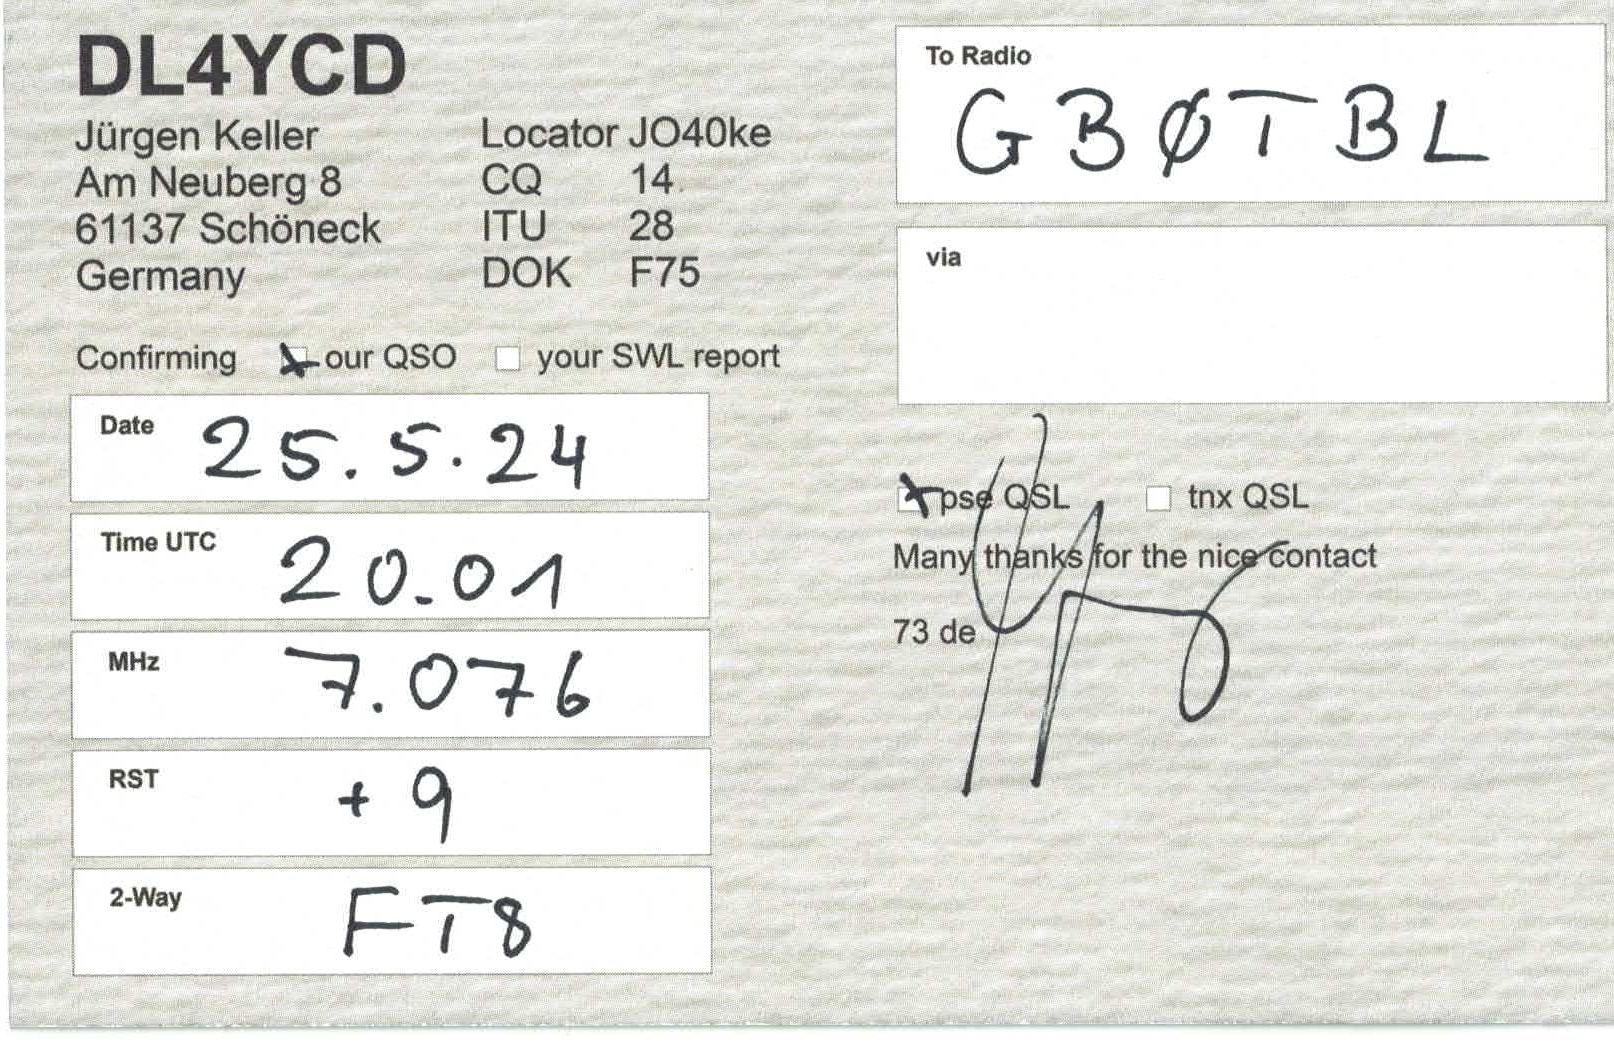 DL4YCD
Jürgen Keller
Am Neuberg 8
61137 Schöneck
Germany
Locator JO40ke
CQ 14
ITU 28
DOK F75
Confirming our QSO your SWL report
Date 25.5.24
Time UTC 20.01
MHz 7.076
RST +9
2-Way FT8
To Radio
GBØTBL
via
pse QSL tnx QSL
Many thanks for the nice contact
73 de